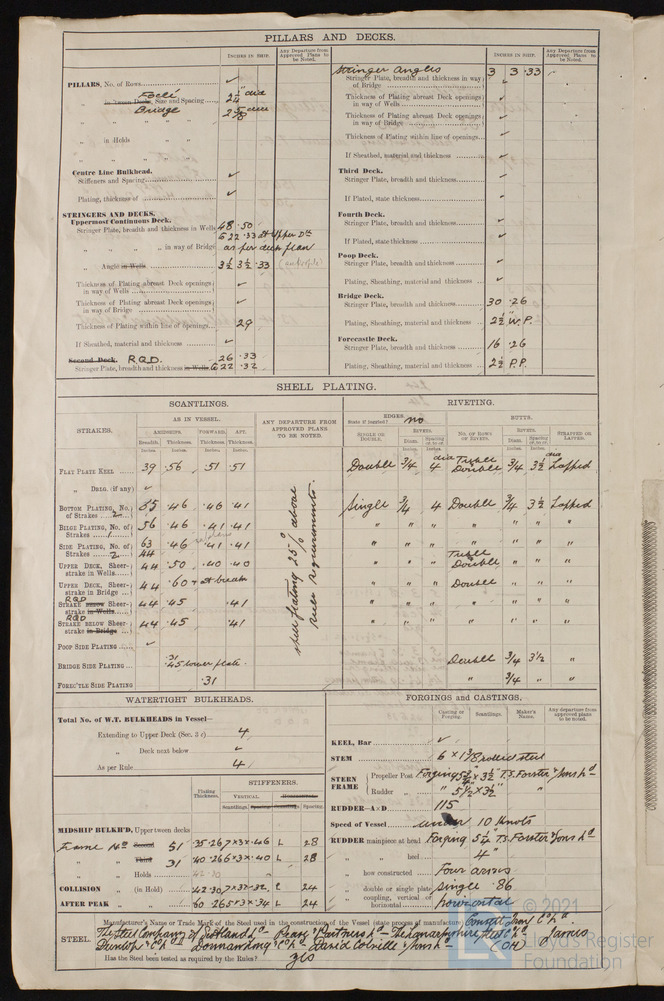 PILLARS AND DECKS.
INCHES IN SHIP.
Any Departure from Approved Plans to be Noted.
PILLARS, No. of Rows
Focle
in 'tween Decks, Size and Spacing 2 1/4" dia
Bridge 2 5/8
" in Holds
Centre Line Bulkhead.
Stiffeners and Spacing
Plating, thickness of
STRINGERS AND DECKS.
Uppermost Continuous Deck.
Stringer Plate, breadth and thickness in Wells 48 .50
22 .33 at Upper Dk
" " " " in way of Bridge as per deck plan
" Angle in Wells 3 1/2 3 1/2 .33
Thickness of Plating abreast Deck openings in way of Wells
Thickness of Plating abreast Deck openings in way of Bridge
Thickness of Plating within line of openings .29
If Sheathed, material and thickness
Second Deck. R.Q.D. 26 .33
Stringer Plate, breadth and thickness in Wells 22 .32
INCHES IN SHIP.
Any Departure from Approved Plans to be Noted.
Stringer Angles 3 3 .33
Stringer Plate, breadth and thickness in way of Bridge
Thickness of Plating abreast Deck openings in way of Wells
Thickness of Plating abreast Deck openings in way of Bridge
Thickness of Plating within line of openings
If Sheathed, material and thickness
Third Deck.
Stringer Plate, breadth and thickness
If Plated, state thickness
Fourth Deck.
Stringer Plate, breadth and thickness
If Plated, state thickness
Poop Deck.
Stringer Plate, breadth and thickness
Plating, Sheathing, material and thickness
Bridge Deck.
Stringer Plate, breadth and thickness 30 .26
Plating, Sheathing, material and thickness 2 1/2" W.P.
Forecastle Deck.
Stringer Plate, breadth and thickness 16 .26
Plating, Sheathing, material and thickness 2 1/2 P.P.
SHELL PLATING.
SCANTLINGS.
RIVETING.
STRAKES.
AS IN VESSEL.
AMIDSHIPS. FORWARD. AFT.
Breadth. Thickness. Thickness. Thickness.
ANY DEPARTURE FROM APPROVED PLANS TO BE NOTED.
EDGES.
State if joggled? no
SINGLE OR DOUBLE.
RIVETS.
BUTTS.
NO. OF ROWS OF RIVETS.
RIVETS.
STRAPPED OR LAPPED.
FLAT PLATE KEEL 39 .56 .51 .51 Double 3/4 4 dia Treble Double 3/4 3 1/2 dia Lapped
" DBLG. (if any)
BOTTOM PLATING, No. of Strakes 2 65 .46 .46 .41 Single 3/4 4 Double 3/4 3 1/2 Lapped
BILGE PLATING, No. of Strakes 1 56 .46 .41 .41 " " " " " " "
SIDE PLATING, No. of Strakes 2 63 .46 .41 .41 " " " " " " "
44
UPPER DECK, Sheerstrake in Wells 44 .50 .40 .40 " " " Treble Double " " "
UPPER DECK, Sheerstrake in Bridge 44 .60 + at break " " " Double " " "
R.Q.D.
STRAKE BELOW Sheerstrake in Wells 44 .45 .41 " " " " " " "
R.Q.D.
STRAKE BELOW Sheerstrake in Bridge 44 .45 .41 " " " " " " "
shell plating 25% above rule requirements.
POOP SIDE PLATING
BRIDGE SIDE PLATING .31 .45 lower plate. Double 3/4 3 1/2 "
FOREC'TLE SIDE PLATING .31 " 3/4 " "
WATERTIGHT BULKHEADS.
Total No. of W.T. BULKHEADS in Vessel—
Extending to Upper Deck (Sec. 3 c) 4
" Deck next below
As per Rule 4
Plating Thickness.
STIFFENERS.
VERTICAL.
Scantlings. Spacing. Scantlings. Spacing.
MIDSHIP BULKH'D, Upper tween decks
Frame No. Second 51 .35-.26 7x3x.46 L 28
" " Third 31 .40-.26 6x3x.40 L 28
" " Holds
COLLISION " (in Hold) .42-.30 7x3x.32 L 24
AFTER PEAK " " .60-.26 5x3x.34 L 24
FORGINGS and CASTINGS.
Casting or Forging.
Scantlings.
Maker's Name.
Any departure from approved plans to be noted.
KEEL, Bar
STEM 6 x 1 3/8 rolled steel
STERN FRAME
Propeller Post Forging 5 3/4" x 3 1/2" T.S. Forster & Sons Ld
Rudder " " 5 1/2 x 3 1/2" "
RUDDER—A x D 115
Speed of Vessel under 10 Knots
RUDDER mainpiece at head Forging 5 1/4 T.S. Forster & Sons Ld
" " heel 4"
" how constructed Four arms
" double or single plate single .86
" coupling, vertical or horizontal horizontal
STEEL.
Manufacturer's Name or Trade Mark of the Steel used in the construction of the Vessel (state process of manufacture) Consett Iron Co Ld.
The Steel Company of Scotland Ld. Pease & Partners Ld - The Lanarkshire Steel Co Ld. James
Dunlop & Co Ld Dorman Long & Co Ld David Colville & Sons Ld (OH)
Has the Steel been tested as required by the Rules? yes
© 2021
Lloyd's Register
Foundation